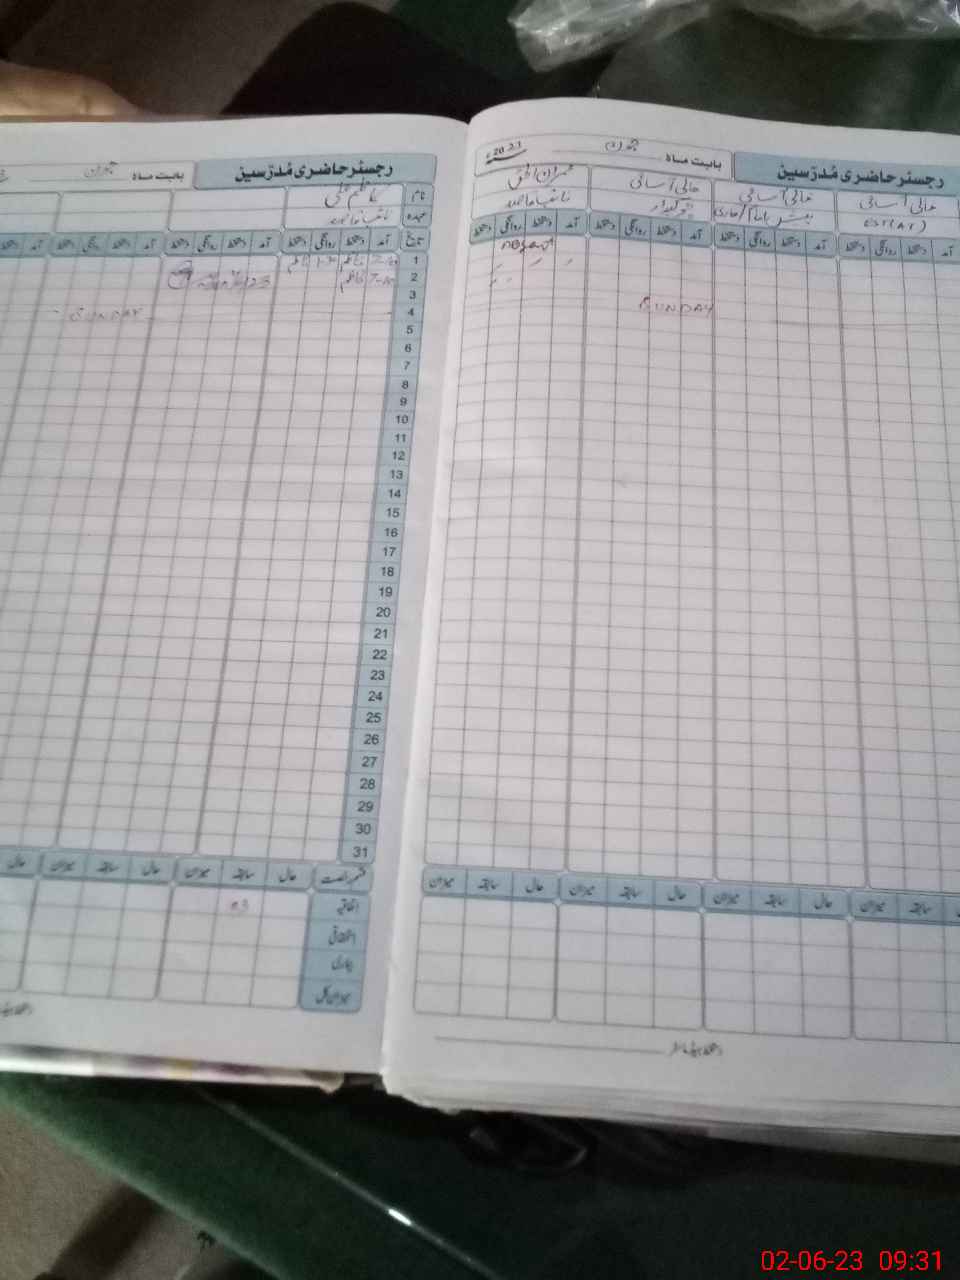 رجسٹر حاضری مُدرّسین
بابت ماہ جون
نام کاظم علی
عہدہ نائب قاصد
تاریخ آمد دستخط روانگی دستخط آمد دستخط روانگی دستخط آمد دستخط روانگی دستخط آمد دستخط
1
2
3
4 SUNDAY
5
6
7
8
9
10
11
12
13
14
15
16
17
18
19
20
21
22
23
24
25
26
27
28
29
30
31
قسم رخصت حال سابقہ میزان حال سابقہ میزان حال
اتفاقیہ 03
استحقاقی
بیماری
میزان کل
رجسٹر حاضری مُدرّسین
بابت ماہ جون 2023ء
خالی آسامی خالی آسامی خالی آسامی
EST(AT) چوکیدار نائب قاصد
آمد دستخط روانگی دستخط آمد دستخط روانگی دستخط آمد دستخط روانگی دستخط آمد دستخط روانگی دستخط
SUNDAY
سابقہ میزان حال سابقہ میزان حال سابقہ میزان حال سابقہ میزان
دستخط ہیڈ ماسٹر
02-06-23 09:31